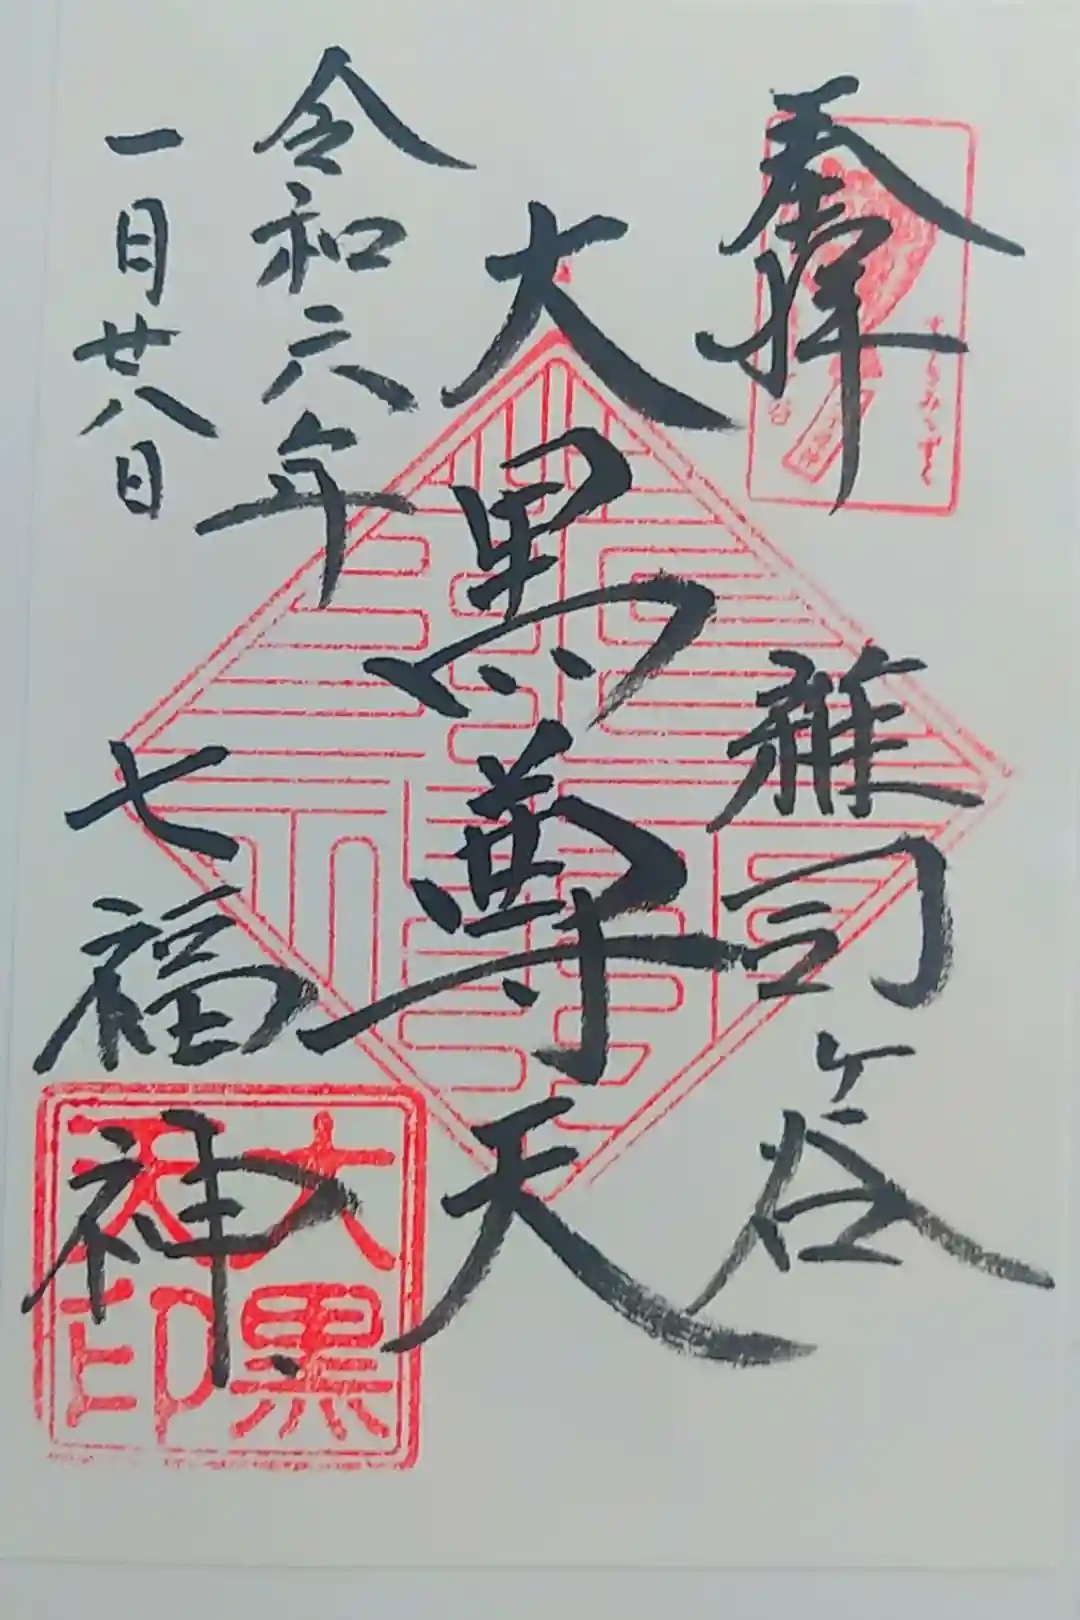 奉拝
雑司ヶ谷
大黒尊天
令和六年
一月廿八日
七福神
すゝきみゝずく
大黒
天印